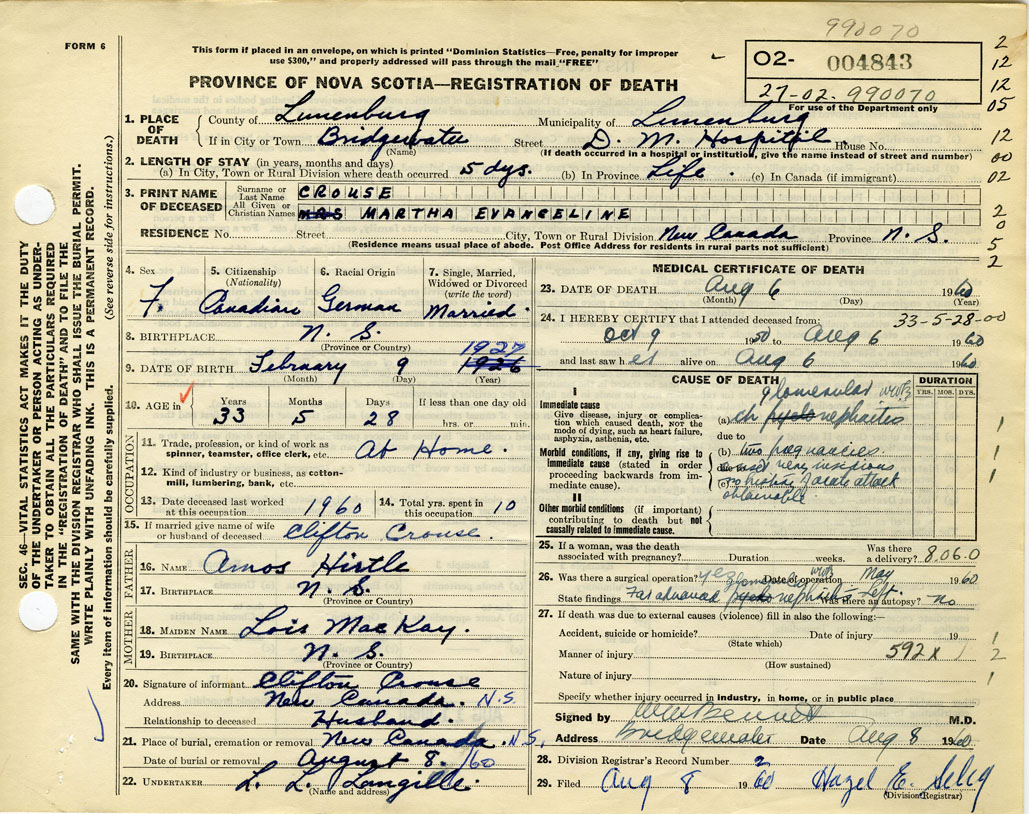 990070
FORM 6
This form if placed in an envelope, on which is printed "Dominion Statistics—Free, penalty for improper
use $300," and properly addressed will pass through the mail "FREE"
PROVINCE OF NOVA SCOTIA—REGISTRATION OF DEATH
02- 004843
27-02-990070
For use of the Department only
2
12
12
05
12
00
02
2
0
5
2
SEC. 46—VITAL STATISTICS ACT MAKES IT THE DUTY
OF THE UNDERTAKER OR PERSON ACTING AS UNDER-
TAKER TO OBTAIN ALL THE PARTICULARS REQUIRED
IN THE "REGISTRATION OF DEATH" AND TO FILE THE
SAME WITH THE DIVISION REGISTRAR WHO SHALL ISSUE THE BURIAL PERMIT.
WRITE PLAINLY WITH UNFADING INK. THIS IS A PERMANENT RECORD.
Every item of information should be carefully supplied. (See reverse side for instructions.)
1. PLACE OF DEATH
County of Lunenburg Municipality of Lunenburg
If in City or Town Bridgewater Street D. M. Hospital House No.
(Name) (If death occurred in a hospital or institution, give the name instead of street and number)
2. LENGTH OF STAY (in years, months and days)
(a) In City, Town or Rural Division where death occurred 5 dys. (b) In Province Life. (c) In Canada (if immigrant)
3. PRINT NAME OF DECEASED
Surname or Last Name CROUSE
All Given or Christian Names MRS MARTHA EVANGELINE
RESIDENCE No. Street City, Town or Rural Division New Canada Province N. S.
(Residence means usual place of abode. Post Office Address for residents in rural parts not sufficient)
4. Sex F.
5. Citizenship (Nationality) Canadian
6. Racial Origin German
7. Single, Married, Widowed or Divorced (write the word) Married.
8. BIRTHPLACE N. S.
(Province or Country)
1927
9. DATE OF BIRTH February 9 1926
(Month) (Day) (Year)
10. AGE in Years 33 Months 5 Days 28 If less than one day old
hrs. or min.
OCCUPATION
11. Trade, profession, or kind of work as
spinner, teamster, office clerk, etc. At Home.
12. Kind of industry or business, as cotton-
mill, lumbering, bank, etc.
13. Date deceased last worked at this occupation 1960
14. Total yrs. spent in this occupation 10
15. If married give name of wife
or husband of deceased Clifton Crouse.
FATHER
16. NAME Amos Hirtle
17. BIRTHPLACE N. S.
(Province or Country)
MOTHER
18. MAIDEN NAME Lois MacKay.
19. BIRTHPLACE N. S.
(Province or Country)
20. Signature of informant Clifton Crouse
Address New Canada N.S.
Relationship to deceased Husband.
21. Place of burial, cremation or removal New Canada. N.S.
Date of burial or removal August 8. /60
22. UNDERTAKER L. L. Langille.
(Name and address)
MEDICAL CERTIFICATE OF DEATH
23. DATE OF DEATH Aug 6 1960
(Month) (Day) (Year)
24. I HEREBY CERTIFY that I attended deceased from: 33-5-28-00
Oct 9 1950 to Aug 6 1960
and last saw her alive on Aug 6 1960
CAUSE OF DEATH
DURATION
YRS. MOS. DYS.
I
Immediate cause
Give disease, injury or complica-
tion which caused death, NOT the
mode of dying, such as heart failure,
asphyxia, asthenia, etc.
glomerular
(a) ch pyelo nephritis
due to
Morbid conditions, if any, giving rise to
immediate cause (stated in order
proceeding backwards from im-
mediate cause).
(b) two pregnancies.
due to onset very insidious
(c) no history of acute attack
obtainable
1
1
1
II
Other morbid conditions (if important)
contributing to death but not
causally related to immediate cause.
25. If a woman, was the death
associated with pregnancy? Duration weeks. Was there a delivery? 806.0
26. Was there a surgical operation? yes Date of operation May 1960
State findings Far advanced glomerulo pyelo nephritis Left. Was there an autopsy? no
27. If death was due to external causes (violence) fill in also the following:—
Accident, suicide or homicide? Date of injury 19
(State which)
Manner of injury 592X
(How sustained)
Nature of injury
1
2
1
Specify whether injury occurred in industry, in home, or in public place
Signed by Bennett M.D.
Address Bridgewater Date Aug 8 1960
28. Division Registrar's Record Number 2
29. Filed Aug 8 1960 Hazel E. Selig
(Division Registrar)